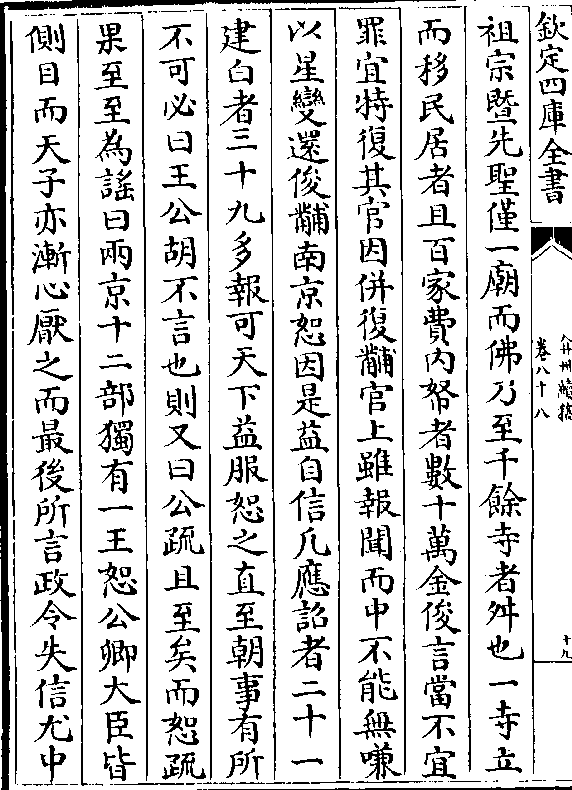 欽定四庫全書
弇州續稿
卷八十八
十九
祖宗暨先聖僅一廟而佛乃至千餘寺者舛也一寺立
而移民居者且百家費内帑者數十萬金俊言當不宜
罪宜特復其官因併復黼官上雖報聞而中不能無嗛
以星變還俊黼南京恕因是益自信凡應詔者二十一
建白者三十九多報可天下益服恕之直至朝事有所
不可必曰王公胡不言也則又曰公疏且至矣而恕疏
果至至為謡曰兩京十二部獨有一王恕公卿大臣皆
側目而天子亦漸心厭之而最後所言政令失信尤中